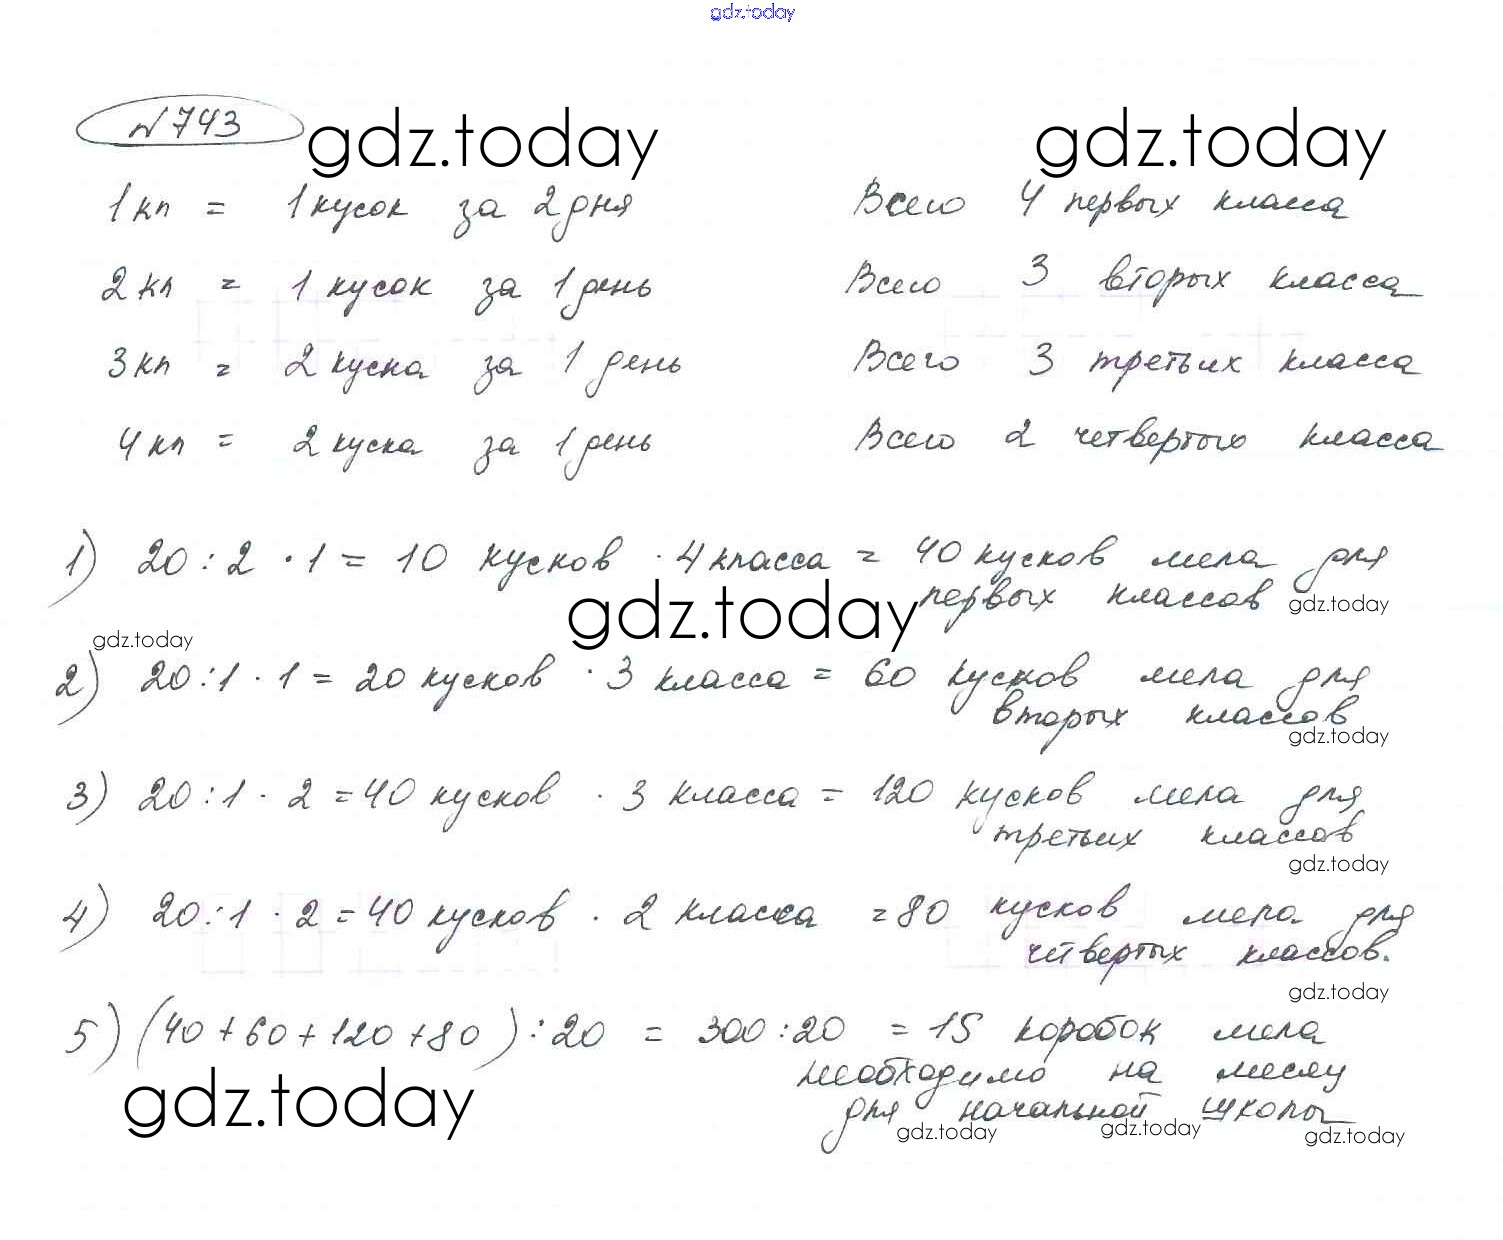 gdz.today
№743
gdz.today gdz.today
1 кл = 1 кусок за 2 дня Всего 4 первых класса
2 кл = 1 кусок за 1 день Всего 3 вторых класса
3 кл = 2 куска за 1 день Всего 3 третьих класса
4 кл = 2 куска за 1 день Всего 2 четвертых класса
1) 20 : 2 · 1 = 10 кусков · 4 класса = 40 кусков мела для
первых классов gdz.today
gdz.today
gdz.today
2) 20 : 1 · 1 = 20 кусков · 3 класса = 60 кусков мела для
вторых классов
gdz.today
3) 20 : 1 · 2 = 40 кусков · 3 класса = 120 кусков мела для
третьих классов
gdz.today
4) 20 : 1 · 2 = 40 кусков · 2 класса = 80 кусков мела для
четвертых классов.
gdz.today
5) (40 + 60 + 120 + 80) : 20 = 300 : 20 = 15 коробок мела
необходимо на месяц
для начальной школы
gdz.today
gdz.today gdz.today gdz.today